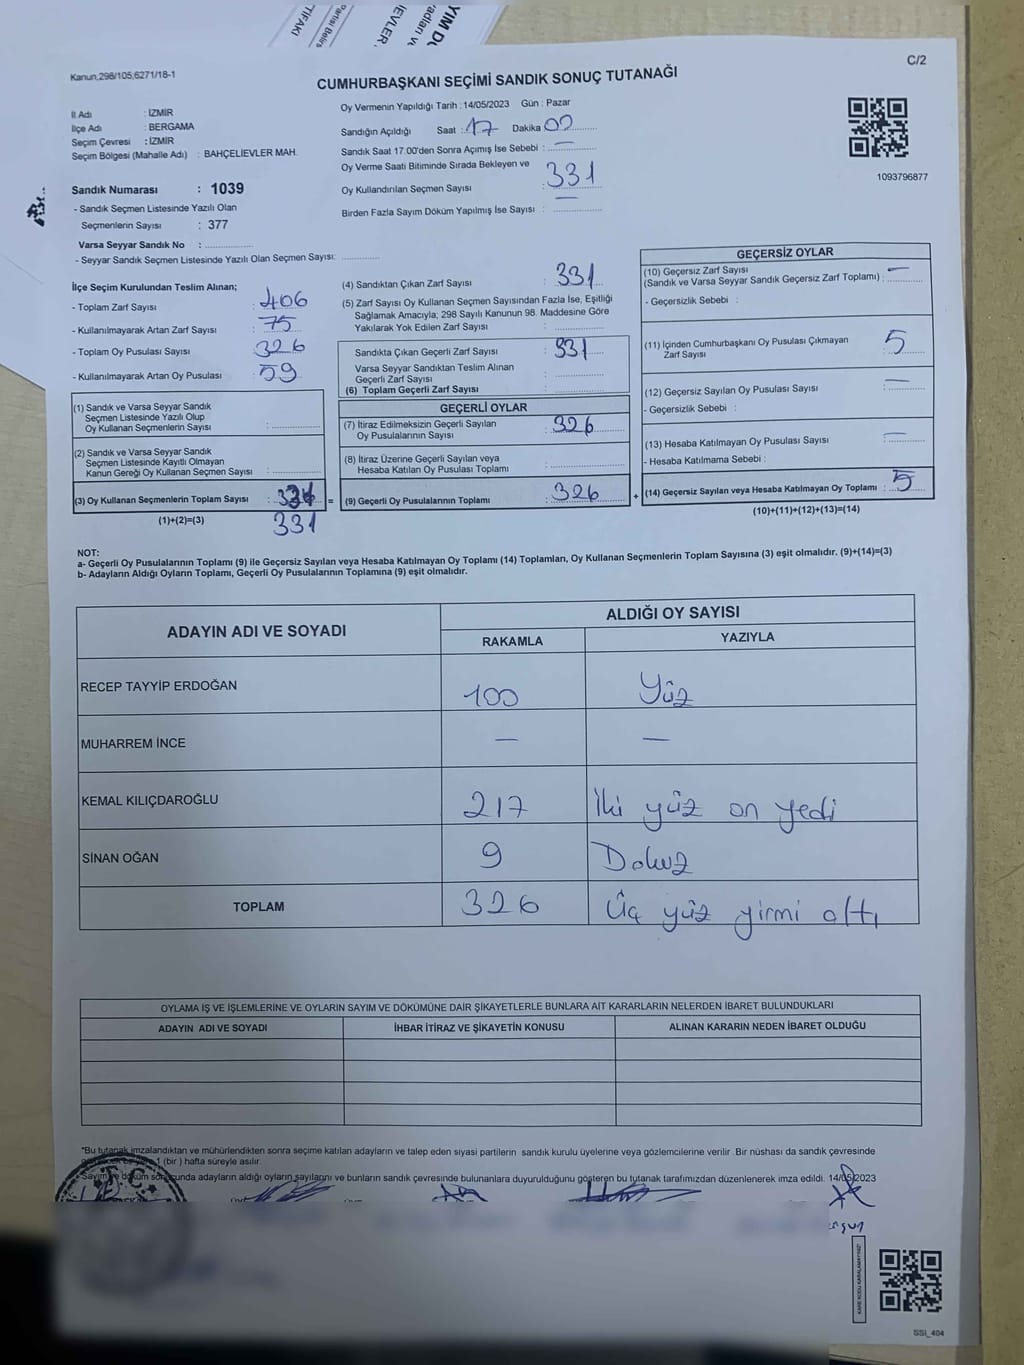 C/2
Kanun,298/105,6271/18-1
CUMHURBAŞKANI SEÇİMİ SANDIK SONUÇ TUTANAĞI
İl Adı : İZMİR
İlçe Adı : BERGAMA
Seçim Çevresi : İZMİR
Seçim Bölgesi (Mahalle Adı) : BAHÇELİEVLER MAH.
Sandık Numarası : 1039
- Sandık Seçmen Listesinde Yazılı Olan
Seçmenlerin Sayısı : 377
Varsa Seyyar Sandık No :
- Seyyar Sandık Seçmen Listesinde Yazılı Olan Seçmen Sayısı:
Oy Vermenin Yapıldığı Tarih : 14/05/2023 Gün : Pazar
Sandığın Açıldığı Saat : 17 Dakika 00
Sandık Saat 17:00'den Sonra Açımış İse Sebebi : —
Oy Verme Saati Bitiminde Sırada Bekleyen ve
Oy Kullandırılan Seçmen Sayısı : 331
Birden Fazla Sayım Döküm Yapılmış İse Sayısı : —
1093796877
İlçe Seçim Kurulundan Teslim Alınan;
- Toplam Zarf Sayısı : 406
- Kullanılmayarak Artan Zarf Sayısı : 75
- Toplam Oy Pusulası Sayısı : 326
- Kullanılmayarak Artan Oy Pusulası : 59
(1) Sandık ve Varsa Seyyar Sandık
Seçmen Listesinde Yazılı Olup
Oy Kullanan Seçmenlerin Sayısı :
(2) Sandık ve Varsa Seyyar Sandık
Seçmen Listesinde Kayıtlı Olmayan
Kanun Gereği Oy Kullanan Seçmen Sayısı :
(3) Oy Kullanan Seçmenlerin Toplam Sayısı :
=
(1)+(2)=(3)
331
(4) Sandıktan Çıkan Zarf Sayısı : 331
(5) Zarf Sayısı Oy Kullanan Seçmen Sayısından Fazla İse, Eşitliği
Sağlamak Amacıyla; 298 Sayılı Kanunun 98. Maddesine Göre
Yakılarak Yok Edilen Zarf Sayısı :
Sandıkta Çıkan Geçerli Zarf Sayısı : 331
Varsa Seyyar Sandıktan Teslim Alınan
Geçerli Zarf Sayısı :
(6) Toplam Geçerli Zarf Sayısı :
GEÇERLİ OYLAR
(7) İtiraz Edilmeksizin Geçerli Sayılan
Oy Pusulalarının Sayısı : 326
(8) İtiraz Üzerine Geçerli Sayılan veya
Hesaba Katılan Oy Pusulası Toplamı :
(9) Geçerli Oy Pusulalarının Toplamı : 326
+
GEÇERSİZ OYLAR
(10) Geçersiz Zarf Sayısı
(Sandık ve Varsa Seyyar Sandık Geçersiz Zarf Toplamı) : —
- Geçersizlik Sebebi :
(11) İçinden Cumhurbaşkanı Oy Pusulası Çıkmayan
Zarf Sayısı : 5
(12) Geçersiz Sayılan Oy Pusulası Sayısı : —
- Geçersizlik Sebebi :
(13) Hesaba Katılmayan Oy Pusulası Sayısı : —
- Hesaba Katılmama Sebebi :
(14) Geçersiz Sayılan veya Hesaba Katılmayan Oy Toplamı : 5
(10)+(11)+(12)+(13)=(14)
NOT:
a- Geçerli Oy Pusulalarının Toplamı (9) ile Geçersiz Sayılan veya Hesaba Katılmayan Oy Toplamı (14) Toplamları, Oy Kullanan Seçmenlerin Toplam Sayısına (3) eşit olmalıdır. (9)+(14)=(3)
b- Adayların Aldığı Oyların Toplamı, Geçerli Oy Pusulalarının Toplamına (9) eşit olmalıdır.
ADAYIN ADI VE SOYADI
ALDIĞI OY SAYISI
RAKAMLA YAZIYLA
RECEP TAYYİP ERDOĞAN 100 Yüz
MUHARREM İNCE — —
KEMAL KILIÇDAROĞLU 217 İki yüz on yedi
SİNAN OĞAN 9 Dokuz
TOPLAM 326 Üç yüz yirmi altı
OYLAMA İŞ VE İŞLEMLERİNE VE OYLARIN SAYIM VE DÖKÜMÜNE DAİR ŞİKAYETLERLE BUNLARA AİT KARARLARIN NELERDEN İBARET BULUNDUKLARI
ADAYIN ADI VE SOYADI İHBAR İTİRAZ VE ŞİKAYETİN KONUSU ALINAN KARARIN NEDEN İBARET OLDUĞU
*Bu tutanak imzalandıktan ve mühürlendikten sonra seçime katılan adayların ve talep eden siyasi partilerin sandık kurulu üyelerine veya gözlemcilerine verilir. Bir nüshası da sandık çevresinde
1 (bir) hafta süreyle asılır.
adayların aldığı oyların sayılarını ve bunların sandık çevresinde bulunanlara duyurulduğunu gösteren bu tutanak tarafımızdan düzenlenerek imza edildi. 14/05/2023
SSİ_404